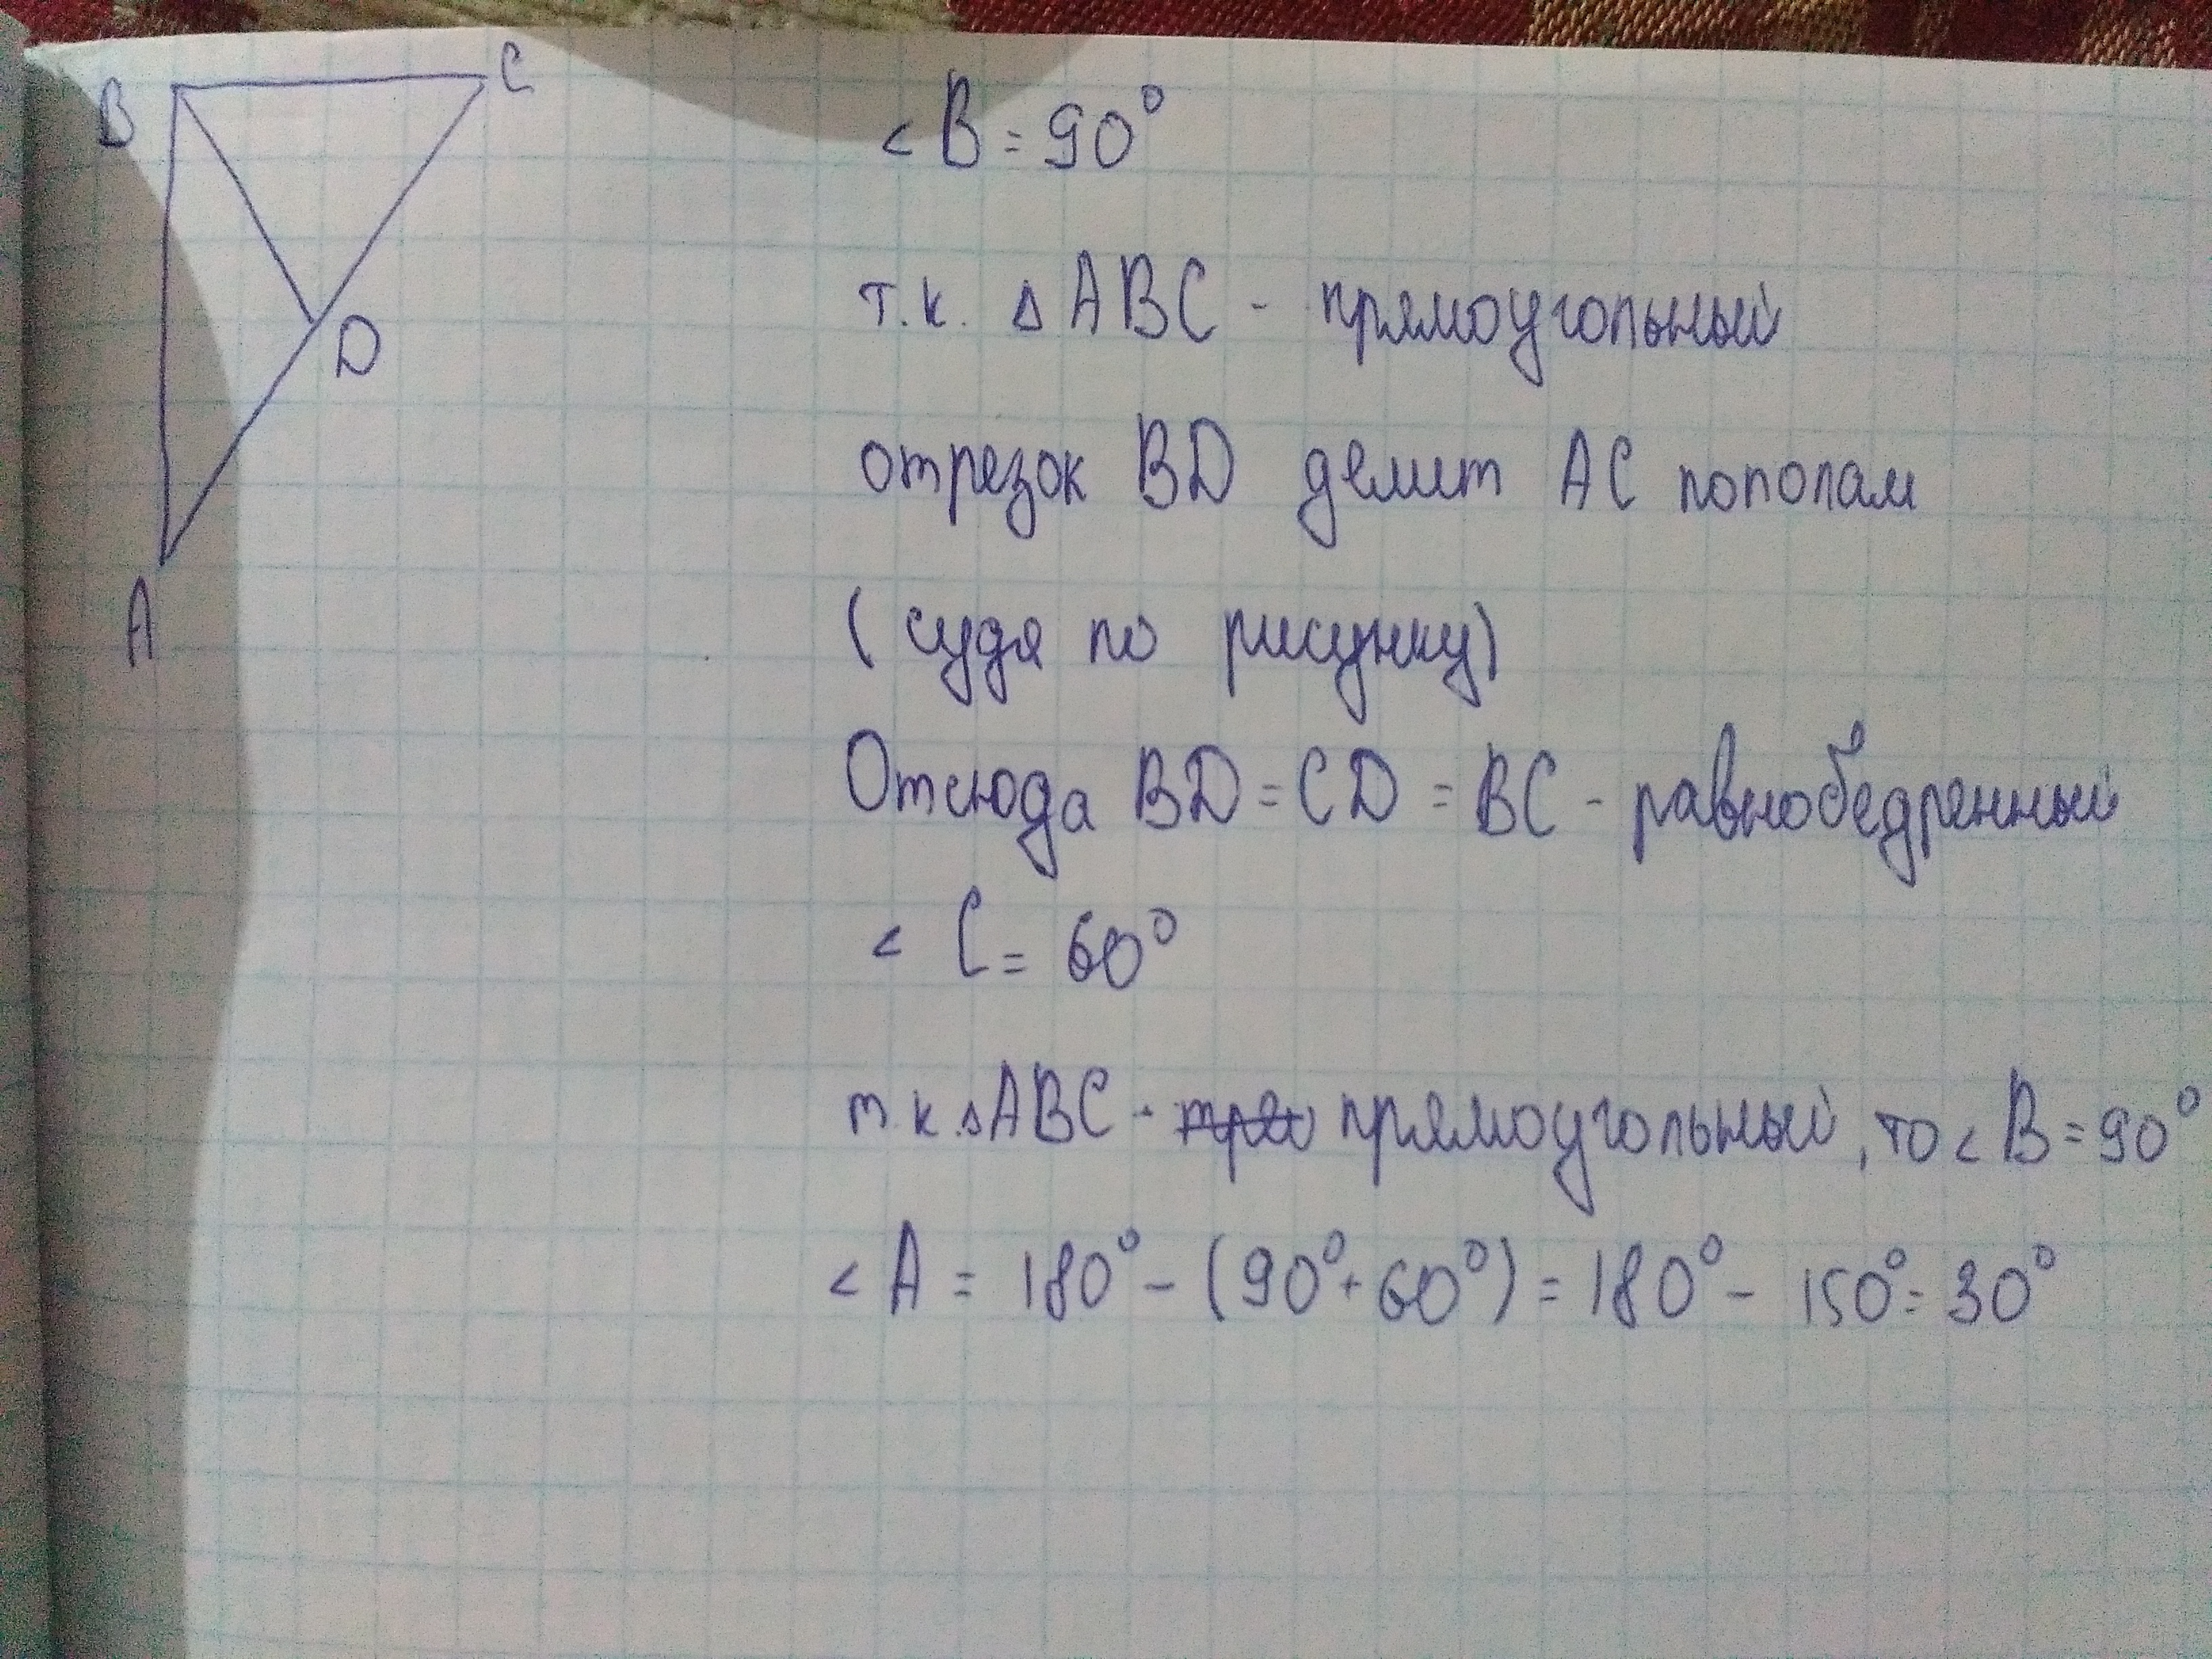 B
C
D
A
< B = 90°
т.к. △ABC - прямоугольный
отрезок BD делит AC пополам
(судя по рисунку)
Отсюда BD = CD = BC - равнобедренный
< C = 60°
т.к. △ABC - прямоугольный, то < B = 90°
< A = 180° - (90° + 60°) = 180° - 150° = 30°